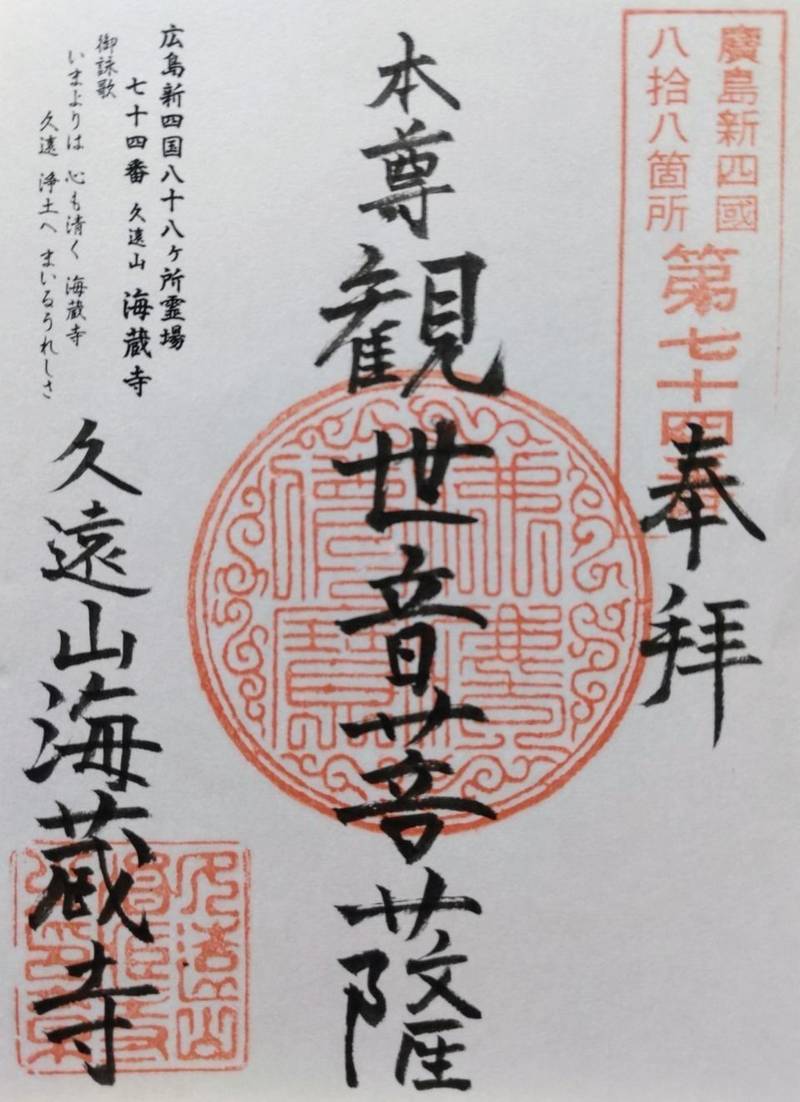 廣島新四國
八拾八箇所
第七十四番
奉拝
本尊 観世音菩薩
広島新四国八十八ヶ所霊場
七十四番 久遠山 海蔵寺
御詠歌
いまよりは 心も清く 海蔵寺
久遠 浄土へ まいるうれしさ
久遠山海蔵寺